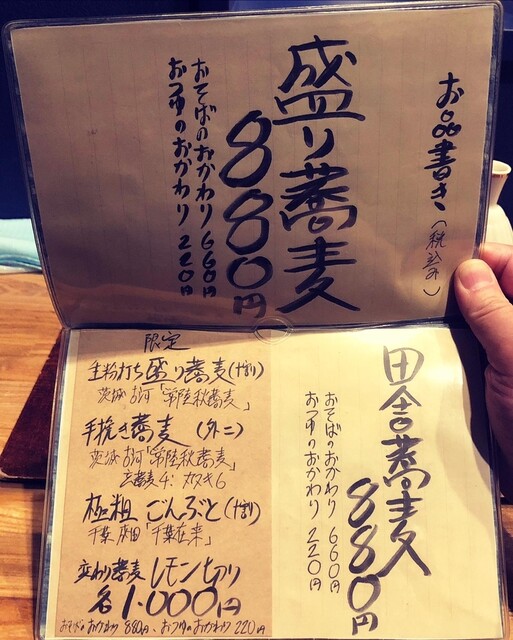 お品書き（税込み）
盛り蕎麦
880円
おそばのおかわり 660円
おつゆのおかわり 220円
田舎蕎麦
880円
おそばのおかわり 660円
おつゆのおかわり 220円
限定
生粉打ち盛り蕎麦（十割）
茨城 古河「常陸秋蕎麦」
手挽き蕎麦（外二）
茨城 古河「常陸秋蕎麦」
玄蕎麦4：丸ヌキ6
極粗ごんぶと（十割）
千葉 成田「千葉在来」
変わり蕎麦 レモン切り
各1,000円
おそばのおかわり 880円、おつゆのおかわり 220円